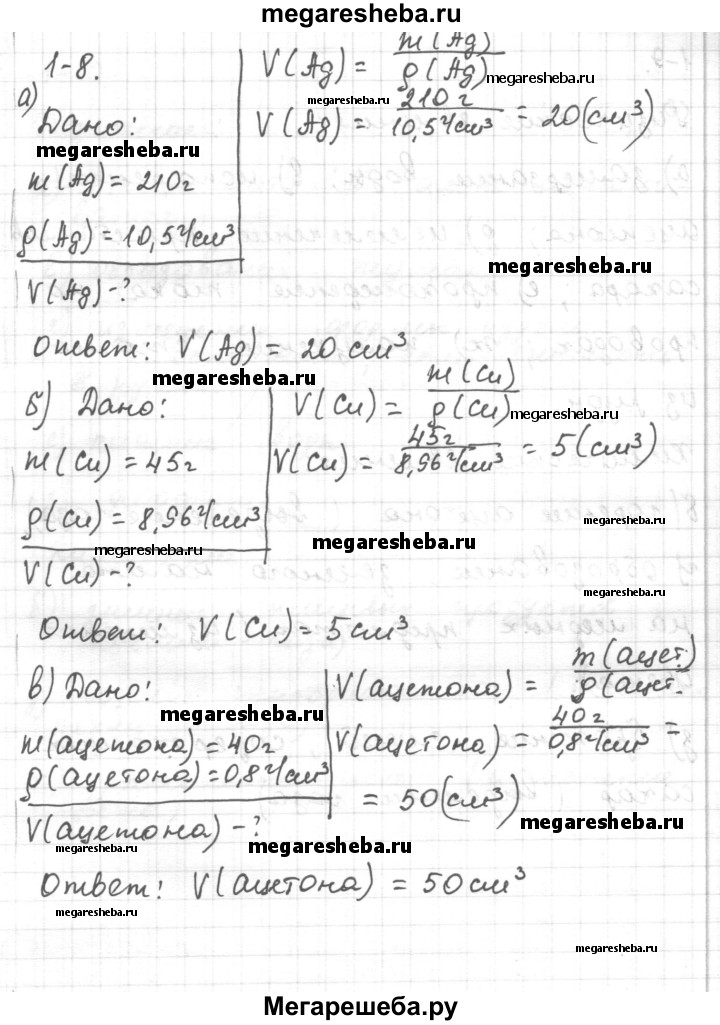 megaresheba.ru
1-8.
а)
Дано:
megaresheba.ru
m(Ag) = 210г
ρ(Ag) = 10,5г/см³
V(Ag) - ?
V(Ag) = m(Ag) / ρ(Ag)
megaresheba.ru
megaresheba.ru
V(Ag) = 210г / 10,5г/см³ = 20(см³)
megaresheba.ru
Ответ: V(Ag) = 20 см³
megaresheba.ru
б) Дано:
m(Cu) = 45г
ρ(Cu) = 8,96г/см³
megaresheba.ru
V(Cu) - ?
V(Cu) = m(Cu) / ρ(Cu)
megaresheba.ru
V(Cu) = 45г / 8,96г/см³ = 5(см³)
megaresheba.ru
megaresheba.ru
megaresheba.ru
Ответ: V(Cu) = 5 см³
megaresheba.ru
в) Дано:
megaresheba.ru
m(ацетона) = 40г
ρ(ацетона) = 0,8г/см³
V(ацетона) - ?
megaresheba.ru
V(ацетона) = m(ацет.) / ρ(ацет.
V(ацетона) = 40г / 0,8г/см³ =
= 50(см³)
megaresheba.ru
megaresheba.ru
Ответ: V(ацетона) = 50 см³
megaresheba.ru
megaresheba.ru
Мегарешеба.ру